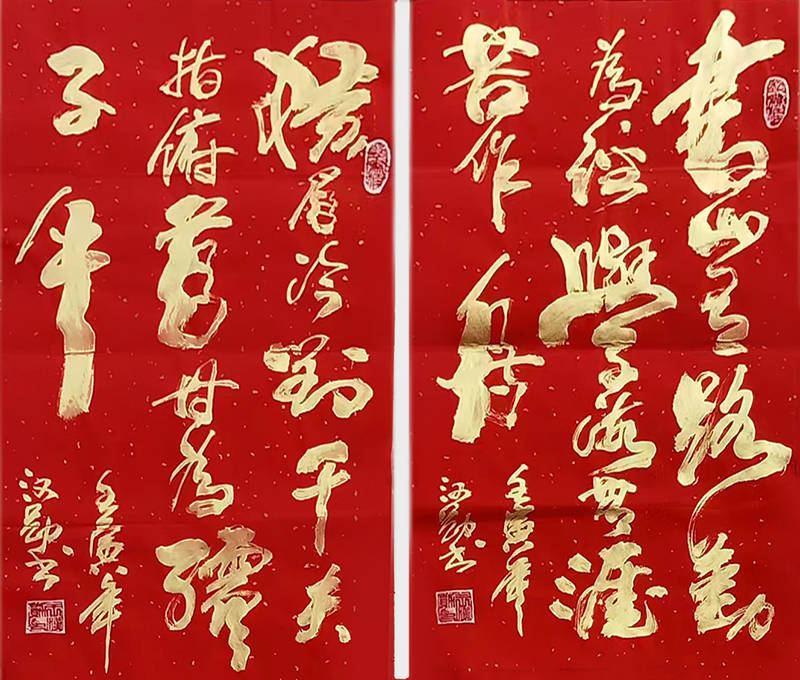 書山有路勤
為徑學海無涯
苦作舟
壬寅年
横眉冷對千夫
指俯首甘為孺
子牛
壬寅年